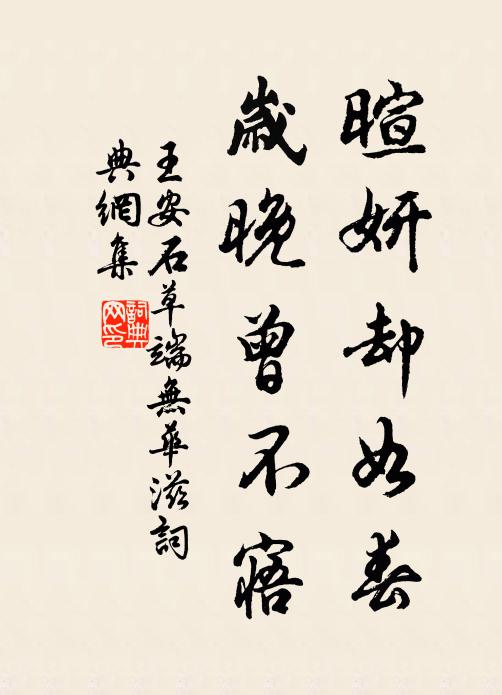 暄妍却如春
歲晚曾不寤
王安石草端無華滋詞
典網集
詞典網印